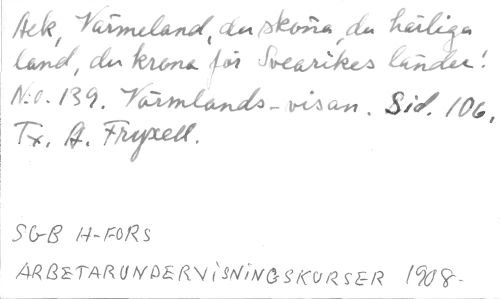 Ack, Värmeland, du sköna, du härliga
land, du krona för Svearikes länder!
N:o. 139. Värmlands-visan. Sid. 106.
Tx. A. Fryxell.
SGB H-FORS
ARBETARUNDERVISNINGSKURSER 1908-